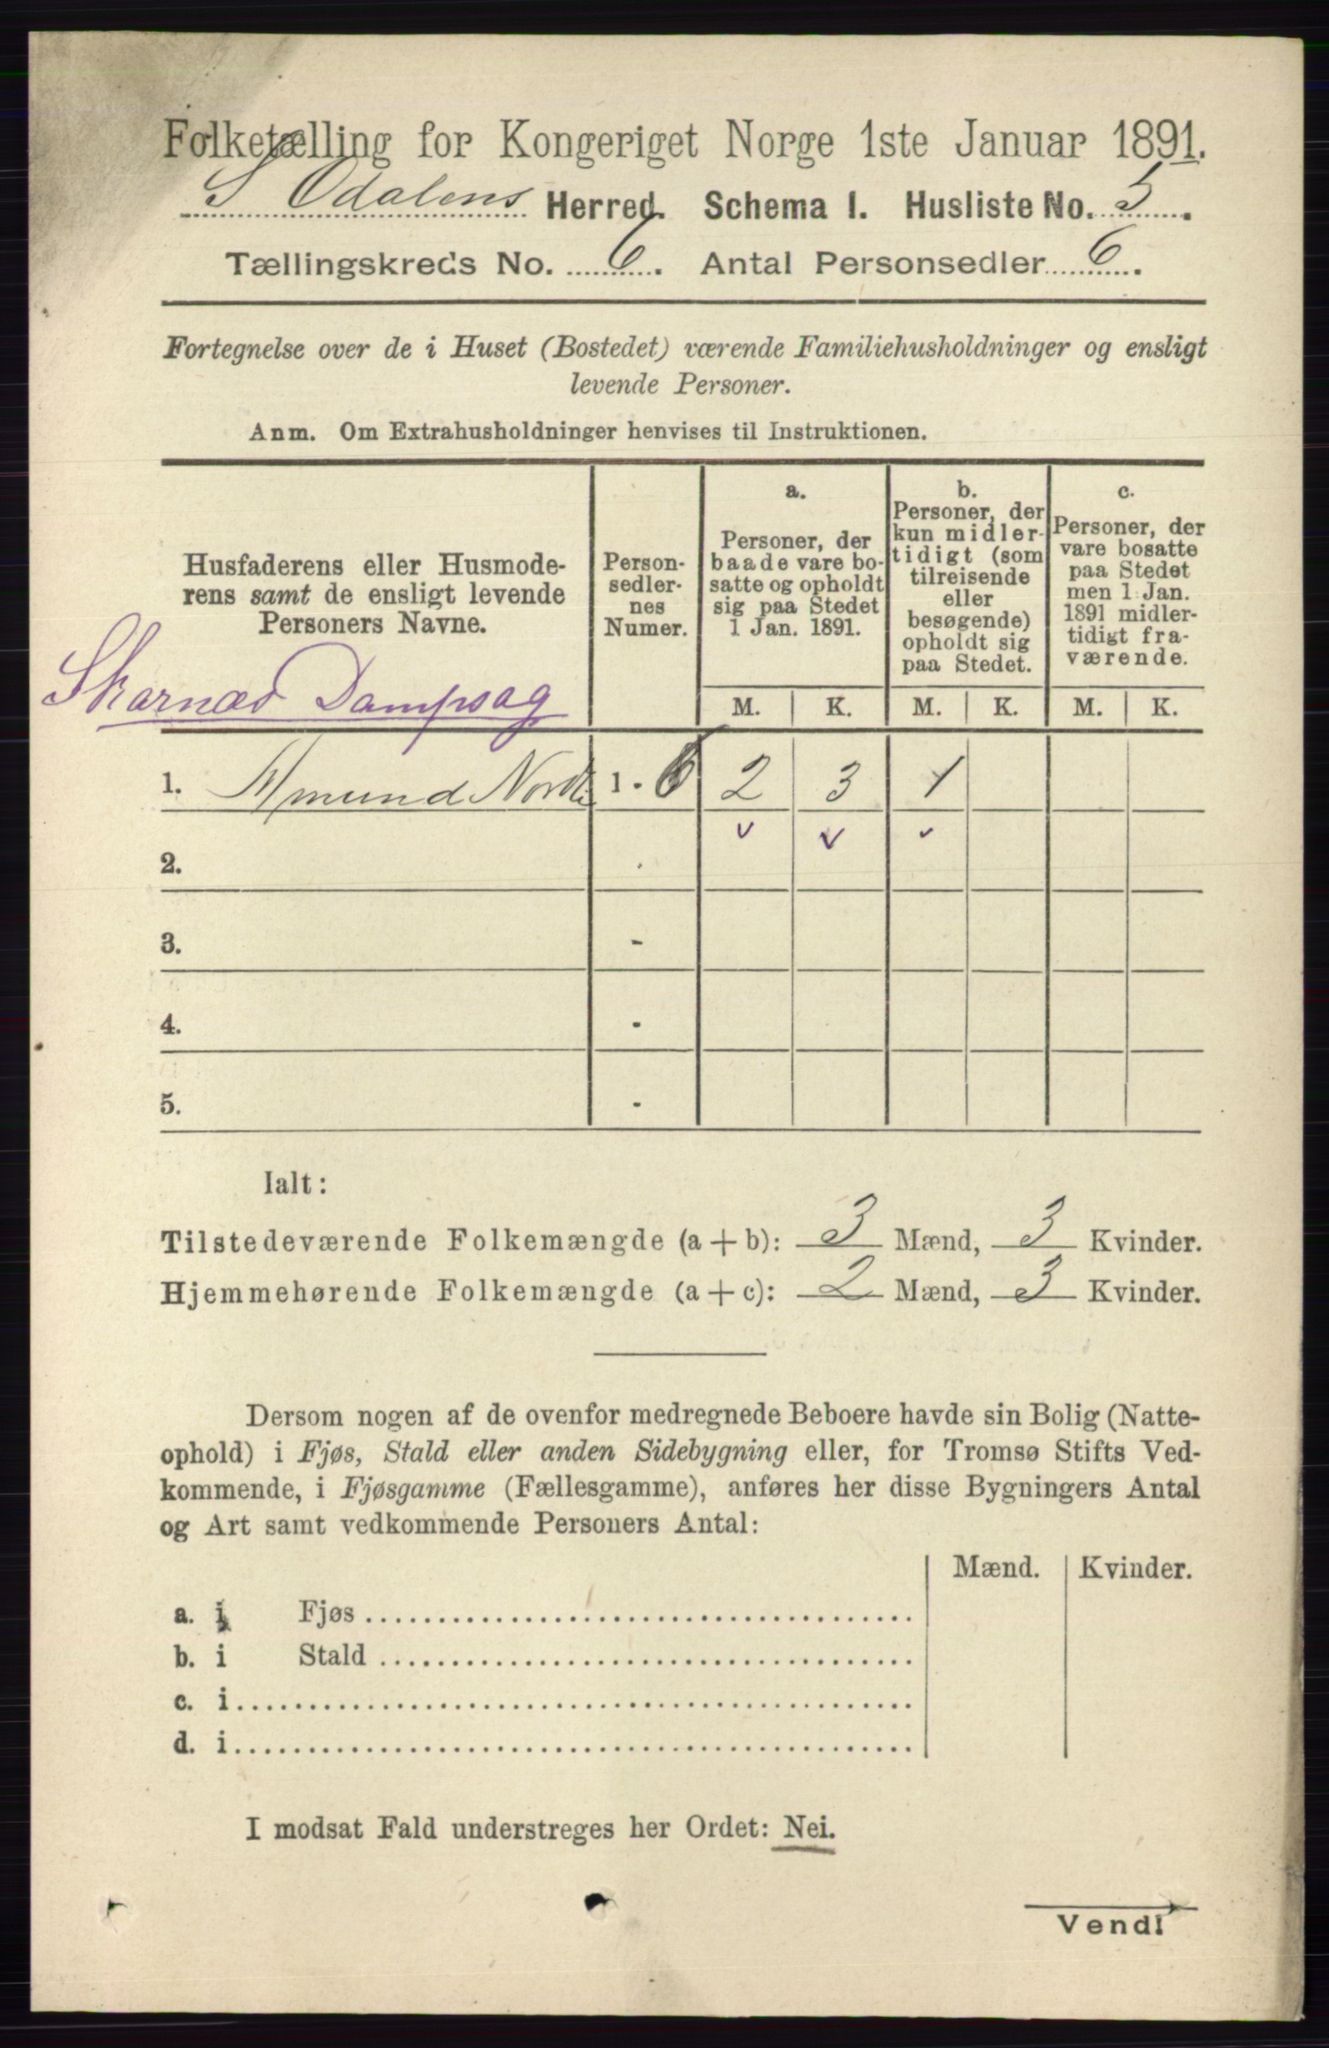 Folketælling for Kongeriget Norge 1ste Januar 1891.
S Odalens Herred. Schema I. Husliste No. 5.
Tællingskreds No. 6. Antal Personsedler 6.
Fortegnelse over de i Huset (Bostedet) værende Familiehusholdninger og ensligt
levende Personer.
Anm. Om Extrahusholdninger henvises til Instruktionen.
Husfaderens eller Husmode-
rens samt de ensligt levende
Personers Navne.
Person-
sedler-
nes
Numer.
a.
Personer, der
baade vare bo-
satte og opholdt
sig paa Stedet
1 Jan. 1891.
b.
Personer, der
kun midler-
tidigt (som
tilreisende
eller
besøgende)
opholdt sig
paa Stedet.
c.
Personer, der
vare bosatte
paa Stedet
men 1 Jan.
1891 midler-
tidigt fra-
værende.
Skarnæs Dampsag
M. K. M. K. M. K.
1. Amund 1 - 6 2 3 1
2.
3. -
4. -
5. -
Ialt:
Tilstedeværende Folkemængde (a + b): 3 Mænd, 3 Kvinder.
Hjemmehørende Folkemængde (a + c): 2 Mænd, 3 Kvinder.
Dersom nogen af de ovenfor medregnede Beboere havde sin Bolig (Natte-
ophold) i Fjøs, Stald eller anden Sidebygning eller, for Tromsø Stifts Ved-
kommende, i Fjøsgamme (Fællesgamme), anføres her disse Bygningers Antal
og Art samt vedkommende Personers Antal:
Mænd. Kvinder.
a. i Fjøs
b. i Stald
c. i
d. i
I modsat Fald understreges her Ordet: Nei.
Vend!